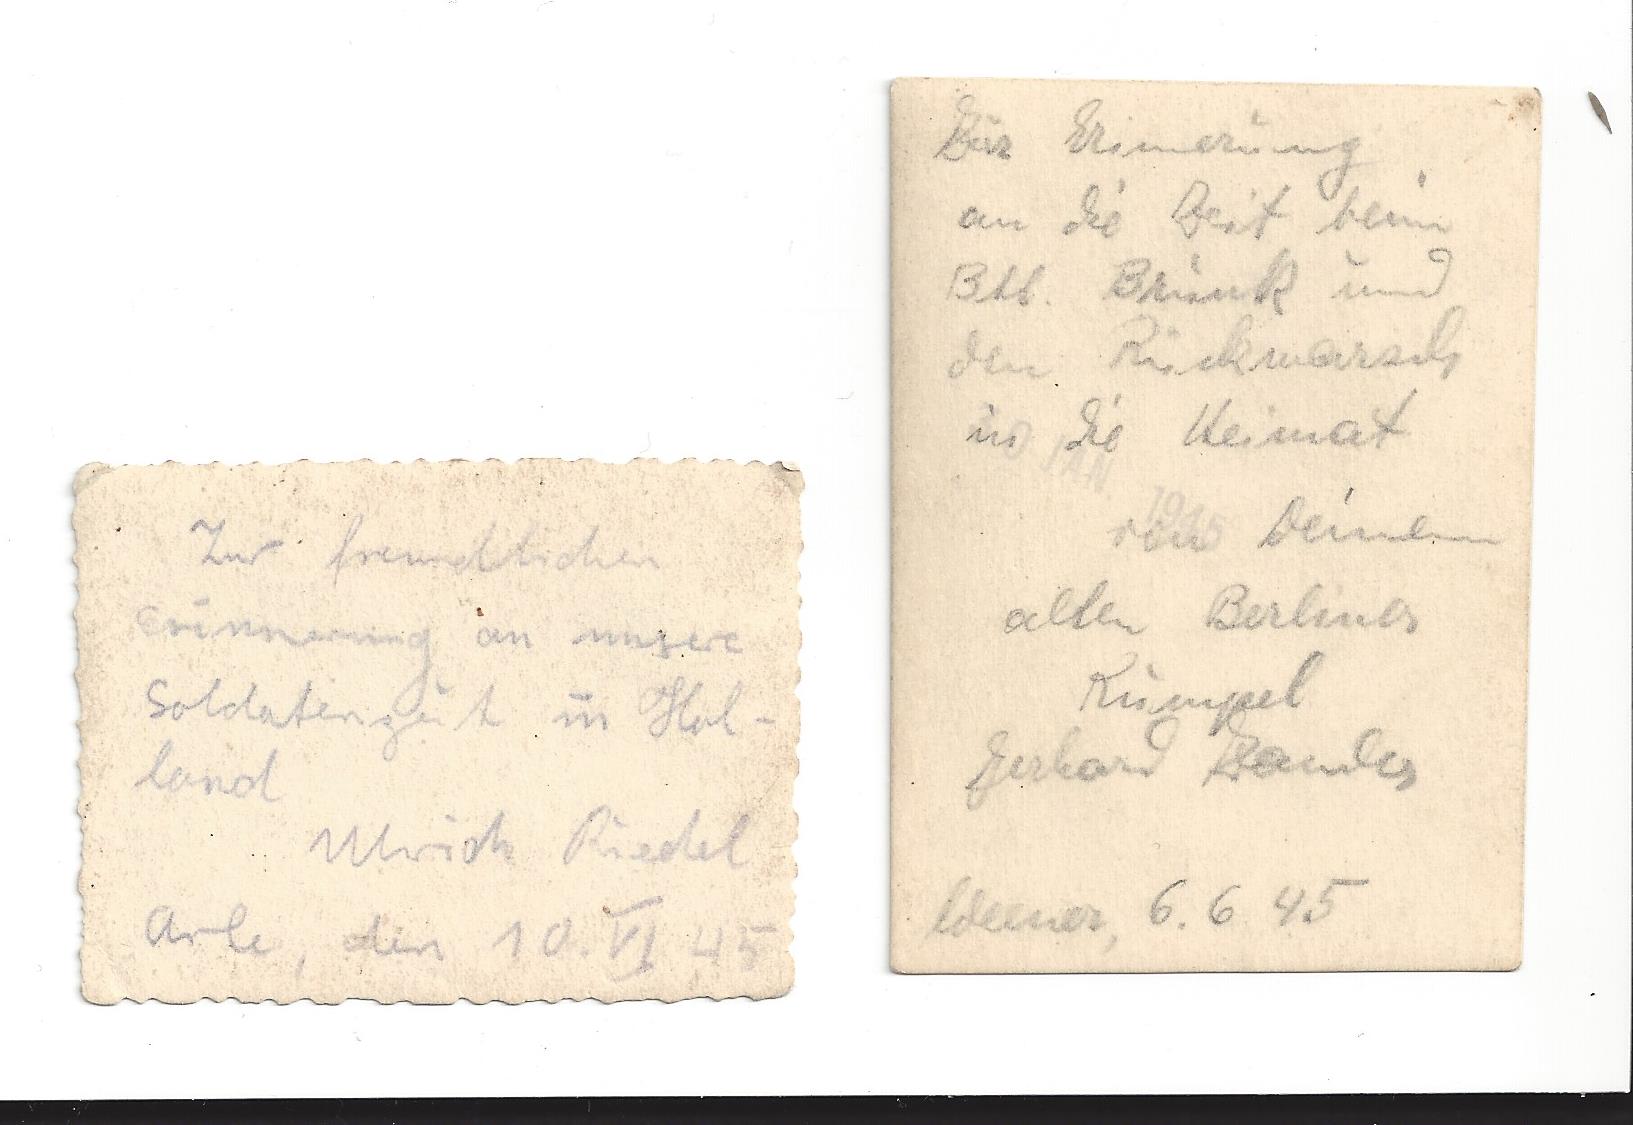 Zur freundlichen
Erinnerung an unsere
Soldatenzeit in Hol-
land
Ulrich Riedel
Arle, den 10. VI 45
Zur Erinerung
an die Zeit beim
Btl. Brink und
den Rückmarsch
in die Heimat
JAN. 1945
von Deinem
alten Berliner
Kumpel
Gerhard
Weener, 6.6 45